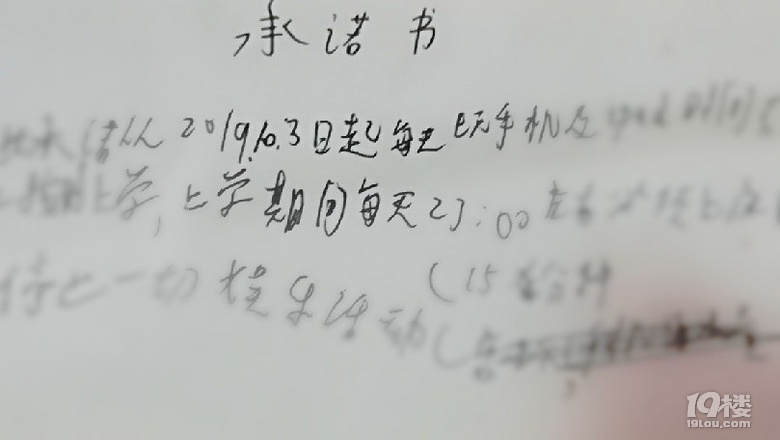 承诺书
承诺从2019.10.3日起每天玩手机及ipad时间
上学,上学期间每天23:00左右必须上床
停止一切娱乐活动(15分钟
19楼
19lou.com